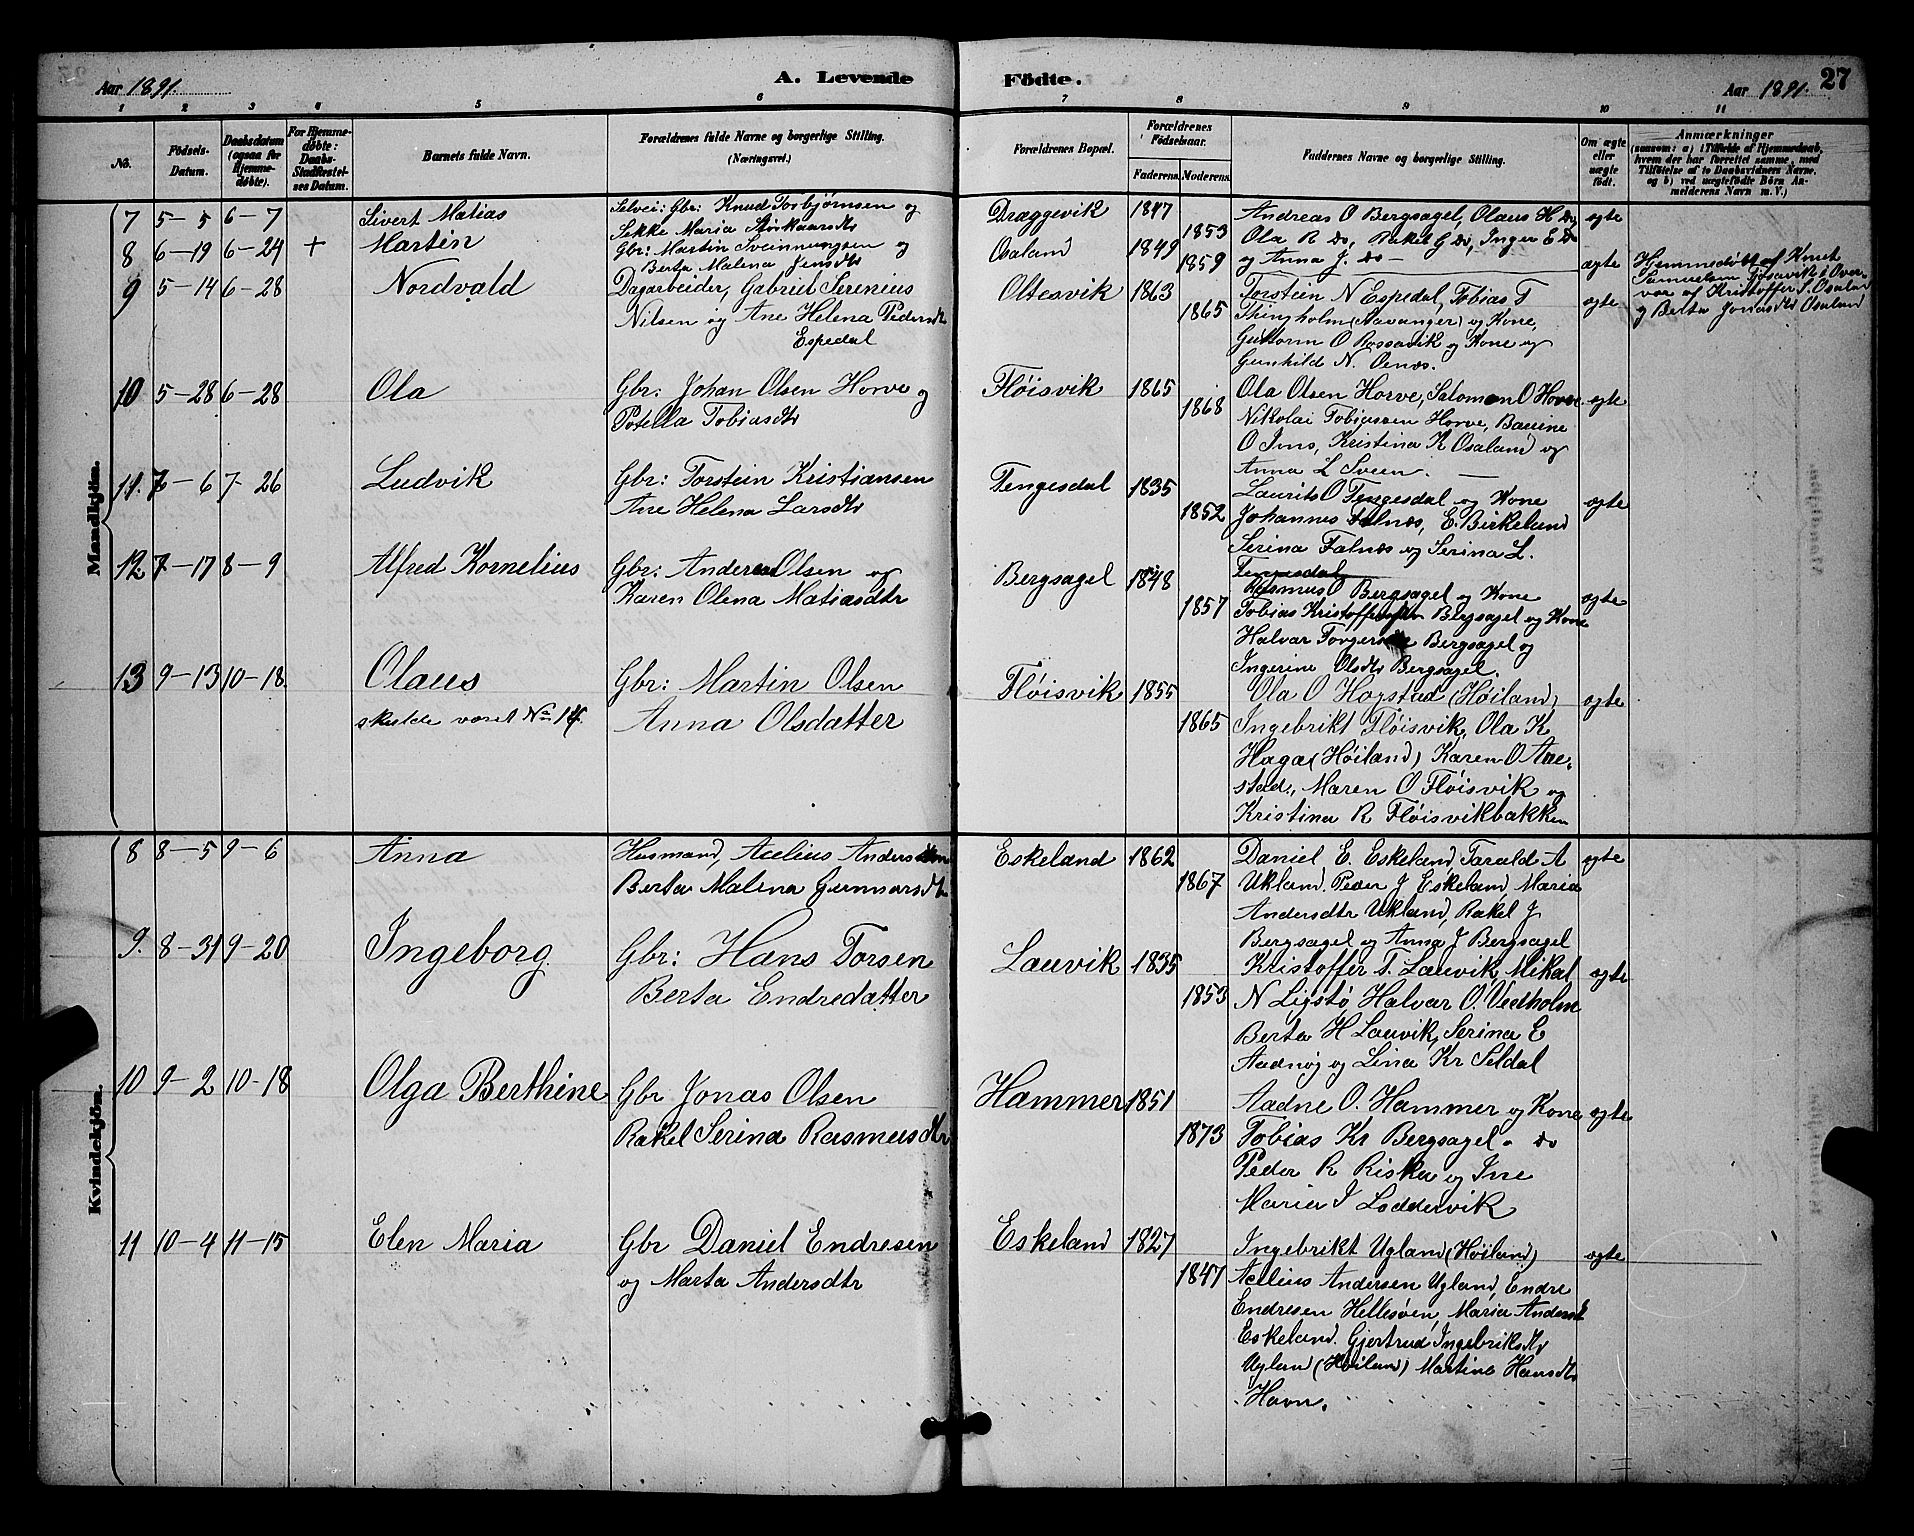 Aar 1891.
A. Levende
Födte.
Aar 1891.
27
1 2 3 4 5 6 7 8 9 10 11
No.
Födsels-Datum.
Daabsdatum (ogsaa for Hjemme-døbte).
For Hjemme-døbte: Daabs-Stadfæstel-ses Datum.
Barnets fulde Navn.
Forældrenes fulde Navne og borgerlige Stilling. (Næringsvei.)
Forældrenes Bopæl.
Forældrenes Födselsaar.
Faderens. Moderens.
Faddernes Navne og borgerlige Stilling.
Om ægte eller uægte födt.
Anmærkninger
(saasom: a) i Tilfælde af Hjemmedaab,
hvem der har forrettet samme, med
Tilföielse af to Daabsvidners Navne,
og b) ved uægtefødte Börn An-
melderens Navn m. V.)
Mandkjön.
7 5-5 6-7 Sivert Matias
Selvei: Gbr: Knud Torbjørnsen og
Sekke Maria
Dræggevik 1847 1853
Andreas O Bergsagel, Olaus H Do
Ola R Do, Rakel G Do, Inger E Do
og Anna J. Do
ægte
8 6-19 6-24 + Martin
Gbr: Martin Sveinnungsen og
Berta Malena Jensdtr
Osaland 1849 1859
ægte
Hjemmedøbt af Knut
Samuelsen Gjøsavik i Over-
vær af Kristoffer S. Osaland
og Berta Jonasdtr Osaland
9 5-14 6-28 Nordvald
Dagarbeider, Gabriel Serenius
Nilsen og Ane Helena Pedersdtr
Espedal
Oltesvik 1863 1865
Torstein N Espedal, Tobias T
Thingholm (Stavanger) og Kone,
Guttorm O Rossavik og Kone og
Gunhild N. Oenæs.
ægte
10 5-28 6-28 Ola
Gbr: Johan Olsen Horve og
Potella Tobiasdtr
Fløisvik 1865 1868
Ola Olsen Horve, Salomon O Horve
Nikolai Tobiassen Horve, Bauine
O Ims, Kristina K Osaland og
Anna L Sveen.
ægte
11. 7-6 7-26 Ludvik
Gbr: Torstein Kristiansen
Ane Helena Larsdtr
Tengesdal 1835 1852
Laurits O Tengesdal og Kone
Johannes Falnes, E. Birkeland
Serina Falnes og Serina L.
Tengesdal
ægte
12 7-17 8-9 Alfred Kornelius
Gbr: Anders Olsen og
Karen Olena Matiasdtr
Bergsagel 1848 1857
Rasmus O Bergsagel og Kone
Tobias Kristoffersen Bergsagel og Kone
Halvar Torgersen Bergsagel og
Ingerine Olsdtr Bergsagel.
ægte
13 9-13 10-18 Olaus
skulde været No 14.
Gbr: Martin Olsen
Anna Olsdatter
Fløisvik 1855 1865
Ola O Hogstad (Høiland)
Ingebrikt Fløisvik, Ola K
Haga (Høiland) Karen O Ane-
stad, Maren O Fløisvik og
Kristina R Fløisvikbakken
ægte
Kvindekjön.
8 8-5 9-6 Anna
Husmand, Aielius Andersen
Berta Malena Gunnarsdtr
Eskeland 1862 1867
Daniel E. Eskeland, Tarald A
Ukland. Peder J Eskeland, Maria
Andersdtr Ukland, Rakel J
Bergsagel og Anna J Bergsagel
ægte
9. 8-31 9-20 Ingeborg
Gbr: Hans Torsen
Berta Endredatter
Lauvik 1835 1853
Kristoffer T. Lauvik, Mikal
N Ligstø Halvar O. Vedholm
Berta H Lauvik, Serina E
Aadnøj og Lina Kr Seldal
ægte
10 9-2 10-18 Olga Berthine
Gbr Jonas Olsen
Rakel Serina Rasmusdtr
Hammer 1851 1873
Aadne O. Hammer og Kone
Tobias Kr Bergsagel " Do
Peder R Riska og Ine
Maria I Loddervik
ægte
11 10-4 11-15 Elen Maria
Gbr Daniel Endresen
og Marta Andersdtr
Eskeland 1827 1847
Ingebrikt Ugland (Høiland)
Aielius Andersen Ugland, Endre
Endresen Hellesøen, Maria Andersd
Eskeland. Gjertrud Ingebriksdtr
Uglan (Høiland) Martine Hansdtr
Havn.
ægte